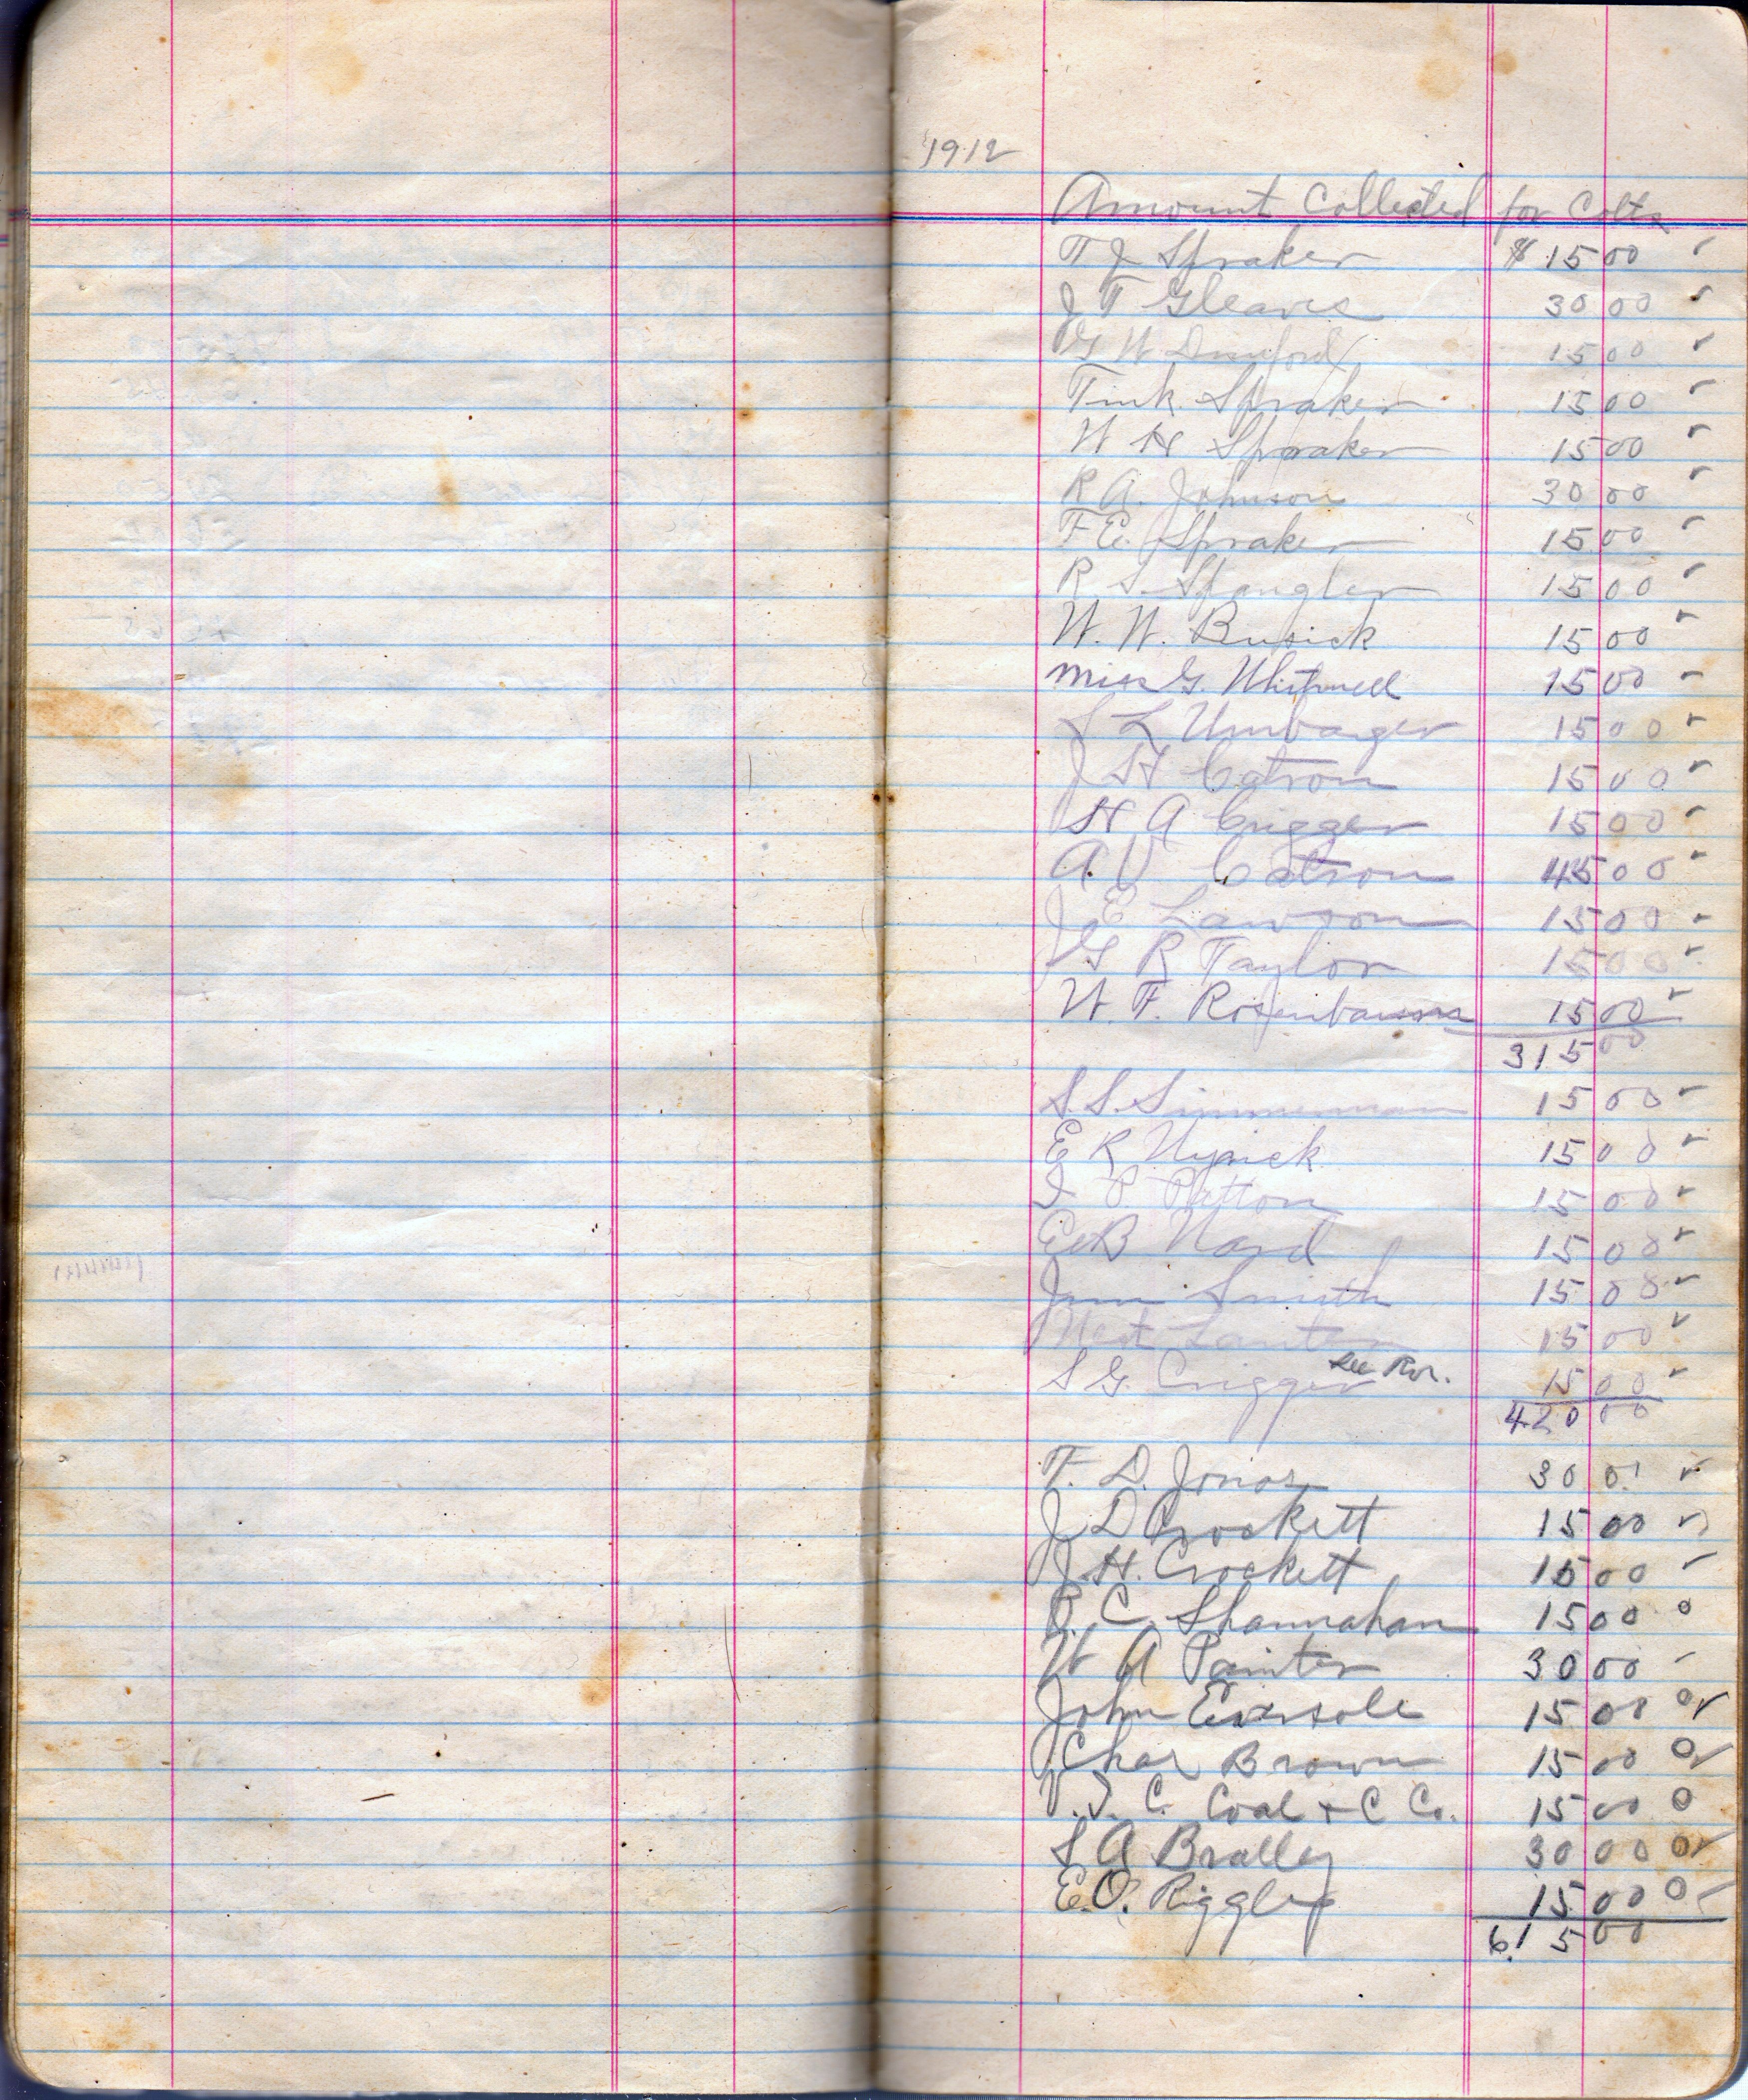 1912
Amount Collected for Colts
T J Spraker $ 15 00
J T Gleaves 30 00
G W Dunford 15 00
Tink Spraker 15 00
W H Spraker 15 00
R A. Johnson 30 00
F E. Spraker 15 00
R S. Spangler 15 00
W. W. Busick 15 00
Miss G. Whitwell 15 00
S L Umbarger 15 00
J H Catron 15 00
H A Crigger 15 00
A. V Catron 45 00
J E Lawson 15 00
G R Taylor 15 00
W. F. Rosenbaum 15 00
315 00
S. S. Simmerman 15 00
E R 15 00
I P Patton 15 00
E B Ward 15 00
Smith 15 00
15 00
See Ror.
S G. Crigger 15 00
420 00
T. D. Jonas 30 0
J D Crockett 15 00
J. H. Crockett 15 00
C. Shannahan 15 00
W A Painter 30 00
John Eversole 15 00
Chas Brown 15 00
V. I. C. Coal + C Co. 15 00
S A Bralley 30 00
E. O. Riggle 15 00
615 00